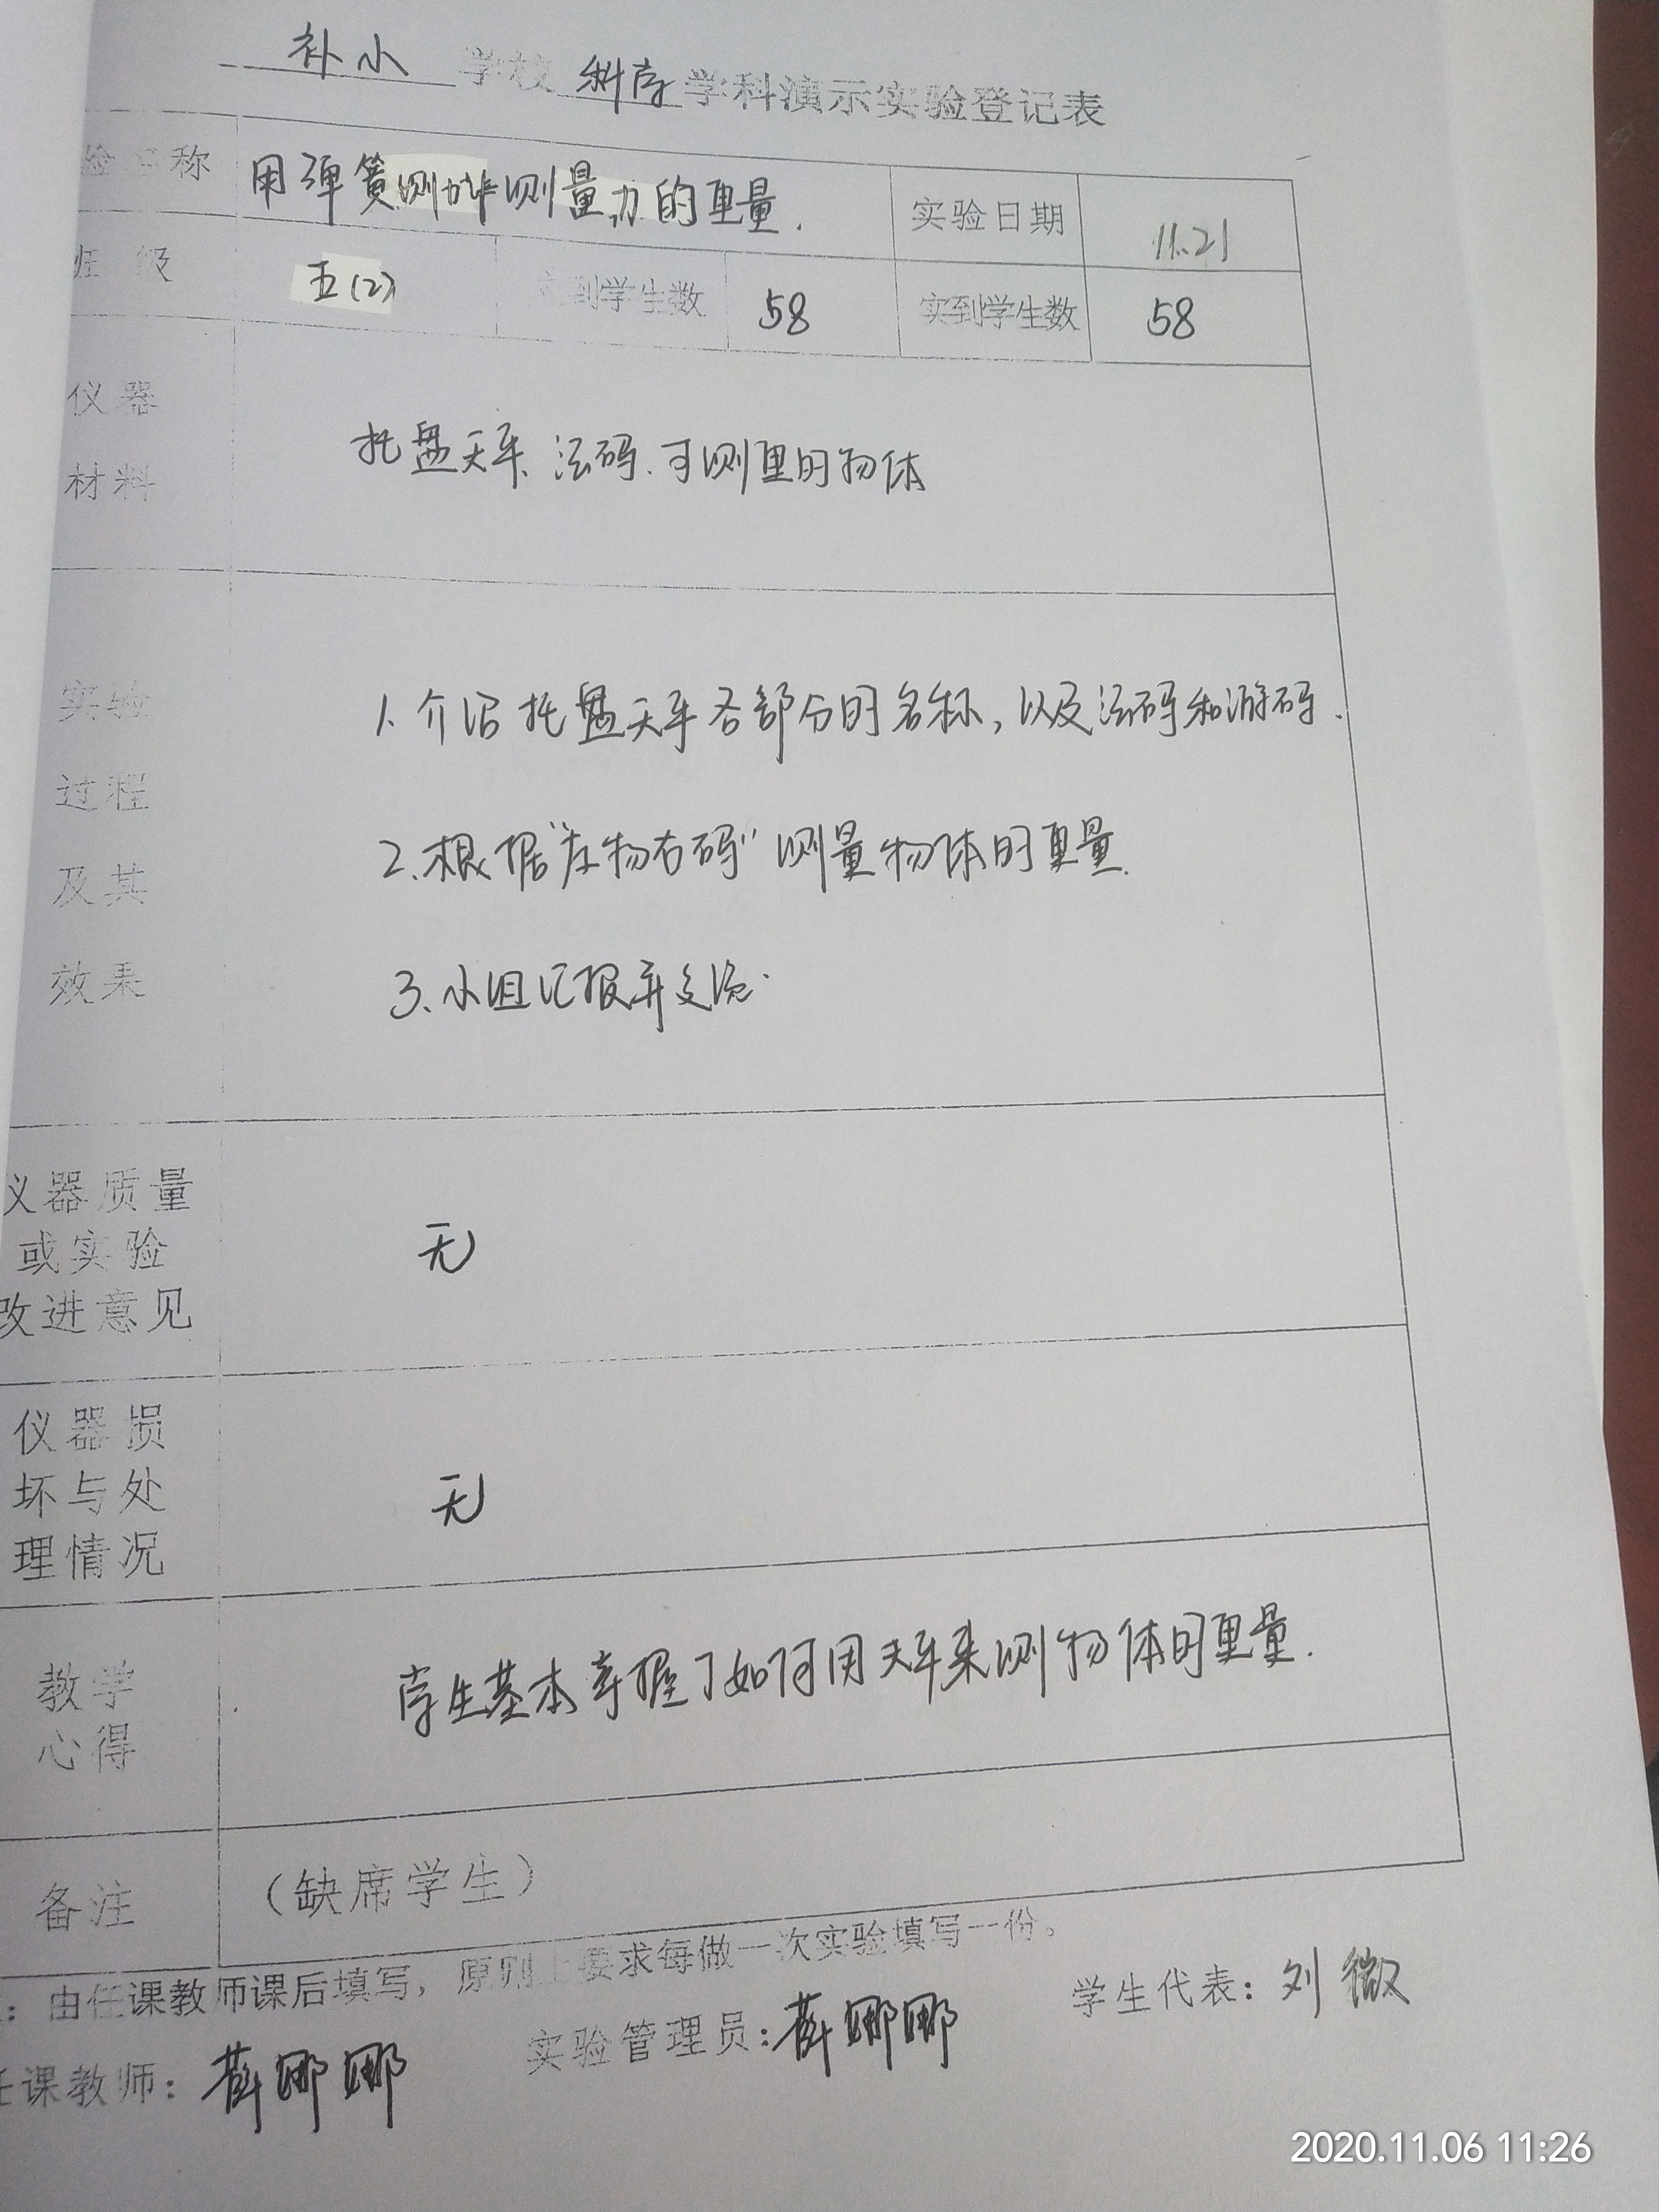 补小 学校 科学 学科演示实验登记表
验名称 用弹簧测力计测量力的重量. 实验日期 11.21
班级 五(2) 到学生数 58 实到学生数 58
仪器
材料
托盘天平、法码、可测量的物体
实验
过程
及其
效果
1. 介绍托盘天平各部分的名称,以及法码和游码.
2. 根据"左物右码"测量物体的重量.
3. 小组汇报并交流.
仪器质量
或实验
改进意见
无
仪器损
坏与处
理情况
无
教学
心得
学生基本掌握了如何用天平来测物体的重量.
备注 (缺席学生)
:由任课教师课后填写,原则上要求每做一次实验填写一份。
任课教师:薛娜娜 实验管理员:薛娜娜 学生代表:刘微
2020.11.06 11:26